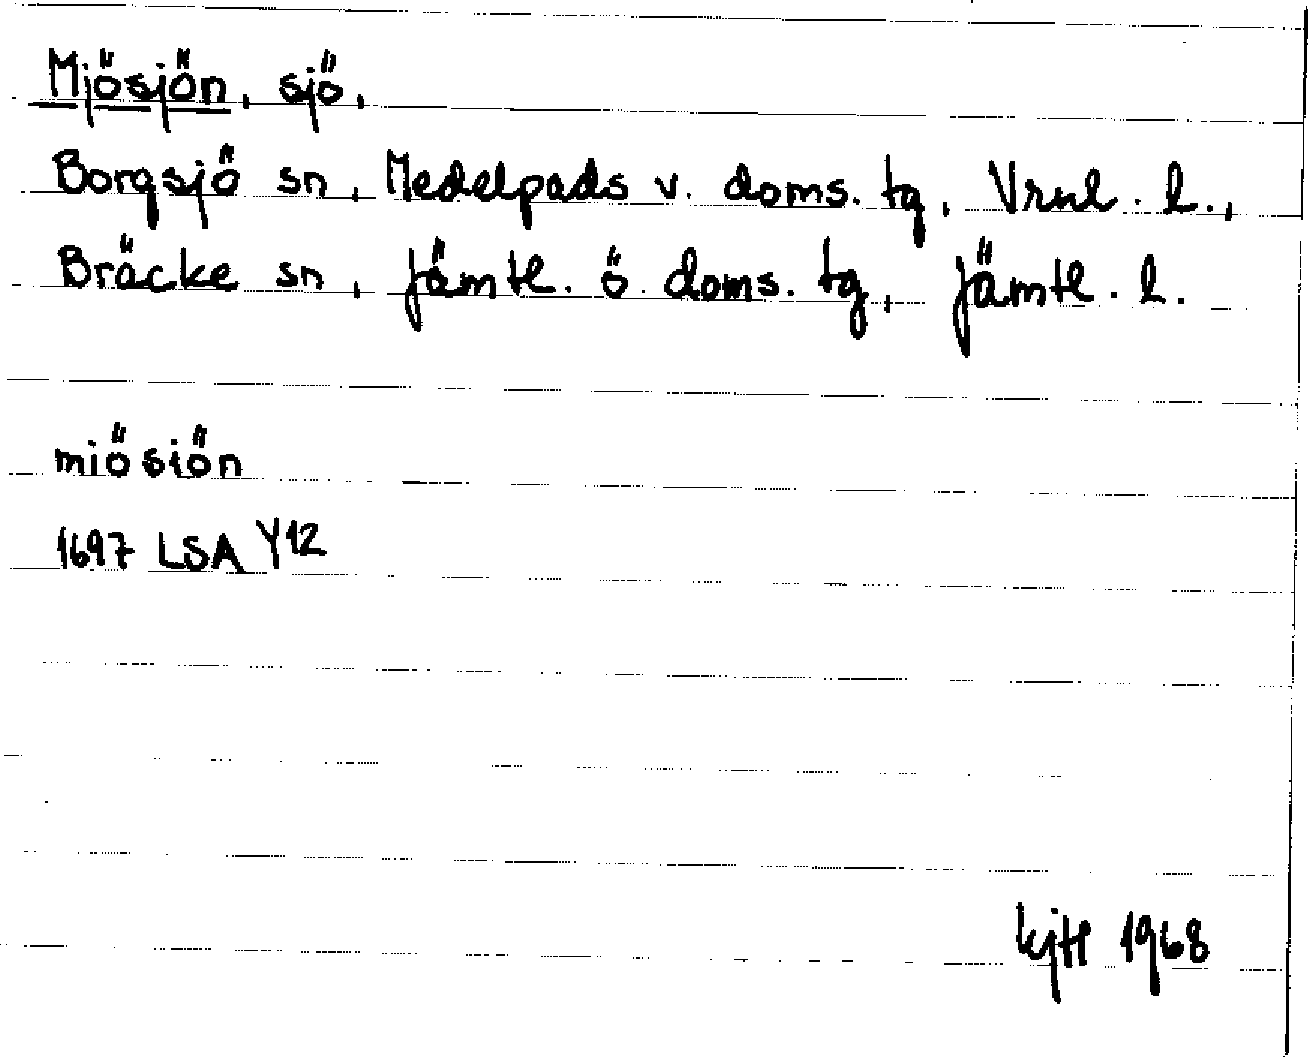 Mjösjön, sjö,
Borgsjö sn, Medelpads v. doms. tg, Vrnl. l.,
Bräcke sn, Jämtl. ö. doms. tg, Jämtl. l.
miösiön
1697 LSA Y12
1968